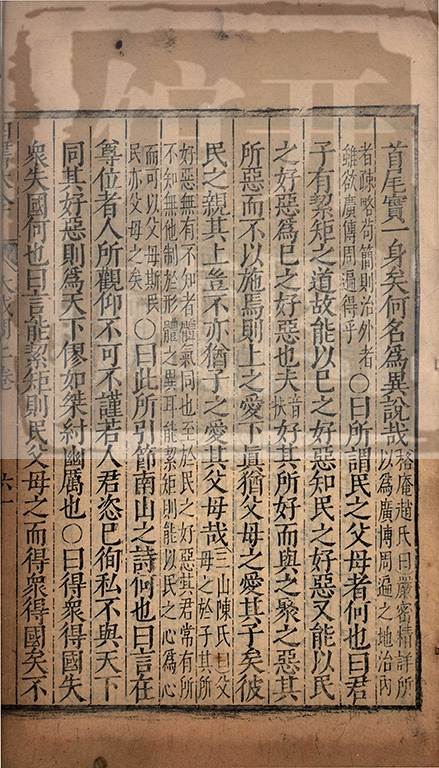 首尾實一身矣何名為異說哉格庵趙氏曰嚴密精詳所以為廣博周遍之地治内
者疎略苟簡則治外者雖欲廣博周遍得乎○曰所謂民之父母者何也曰君
子有絜矩之道故能以巳之好惡知民之好惡又能以民
之好惡為巳之好惡也夫音扶好其所好而與之聚之惡其
所惡而不以施焉則上之愛下眞猶父母之愛其子矣彼
民之親其上豈不亦猶子之愛其父母哉三山陳氏曰父母之於子其所
好惡無有不知者體氣同也至於民之好惡其君常有所不知無他制於形體之異耳能絜矩則能以民之心為心
而可以父母斯民民亦父母之矣○曰此所引節南山之詩何也曰言在
尊位者人所觀仰不可不謹若人君恣巳徇私不與天下
同其好惡則為天下僇如桀紂幽厲也○曰得衆得國失
衆失國何也曰言能絜矩則民父母之而得衆得國矣不